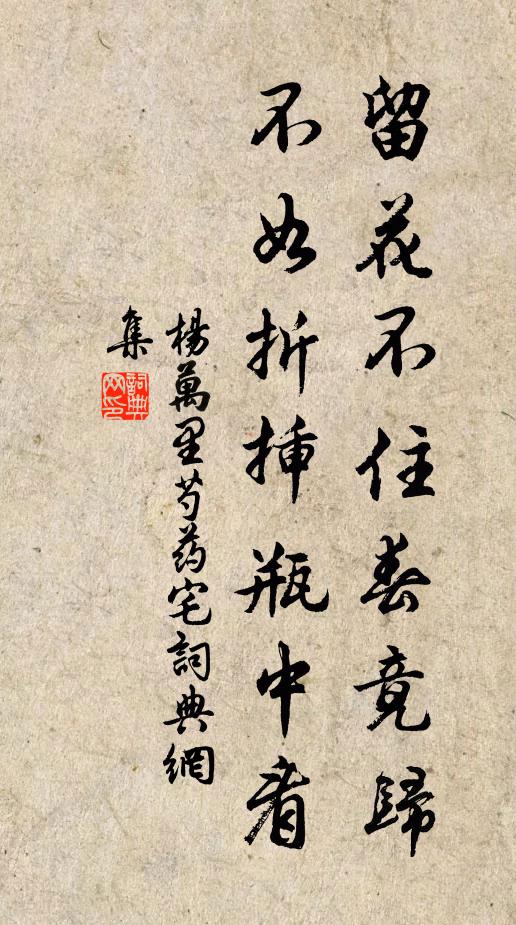 留花不住春竟歸
不如折插瓶中看
楊萬里芍药宅詞典網
集
詞典
网印